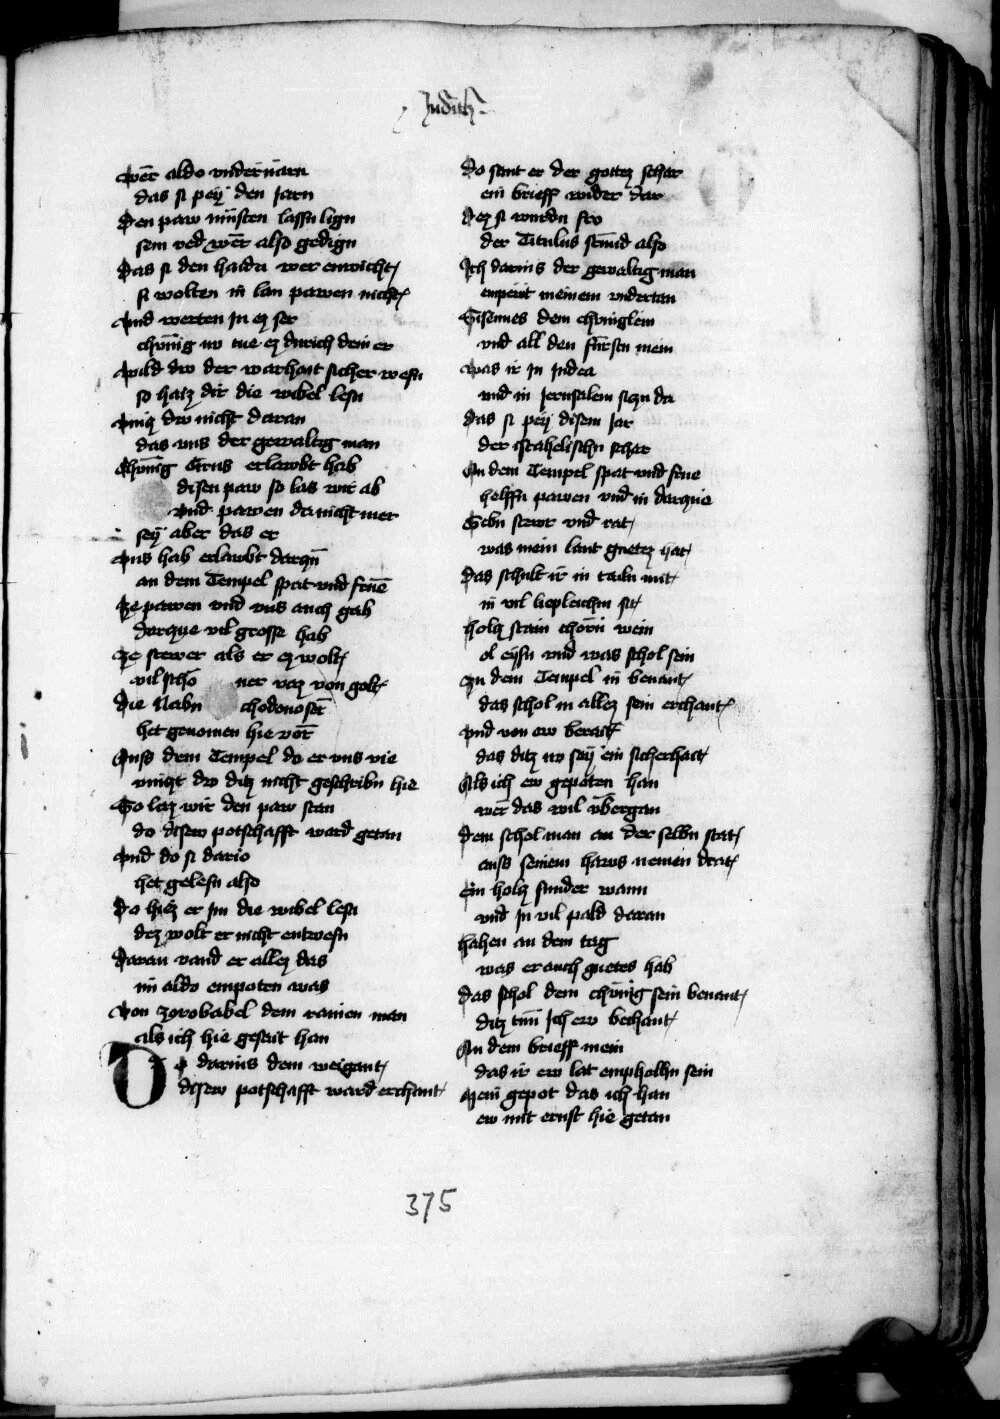 Judith
Wer aldo vndernarn
das si pey den Jarn
Den paw müsten lassn lign
sein red wer also gedign
Das si den haidn wer enwicht
si wolten in lan pawen nicht
Vnd werten In ez ser
chünig nv tue ez durich dein er
Wild dw der warhait sicher wesn
so haiz dir die wibel lesn
Vmb dw nicht daran
das vns der gewaltig man
Chünig Cirus erlawbt hab
disen paw so las wir ab
Vnd pawen da nicht mer
sey aber das er
Vns hab erlawbt darczu
an dem Tempel spat vnd frue
Ze pawen vnd vns auch gab
darczue vil grosse hab
Ze stewer als er ez wolt
vil scho ner vaz von golt
die Nabu chodonosor
het genomen hie vor
Auss dem Tempel do er vns vie
vindst dw ditz nicht geschribn hie
So laz wir den paw stan
do disew potschafft ward getan
Vnd do si dario
het gelesn also
Do hiez er Im die wibel lesn
dez wolt er nicht entwesn
Daran vand er allez das
im aldo empoten was
Von zorobabel dem rainen man
als ich hie gesait han
Do darius dem weigant
disew potschafft ward erchant
do sant er der gotez schar
ein brieff wider dar
Dez si wurdn fro
der Titulus stuend also
Ich darius der gewaltig man
empeut meinem vndertan
Sisennes dem chüniglein
vnd all den fürstn mein
Was ir In Judea
vnd in Jerusalem sizn da
Das si pey disem Jar
der israhelischn schar
An dem Tempel spat vnd frue
helffn pawen vnd in darczue
Gebn stewr vnd rat
was mein lant guetez hat
Das schult ir in tailn mit
in vil liepleichm sit
holz stain chorn wein
ol eysn vnd was schol sein
Zu dem Tempel in benant
das schol in allez sein erchant
Vnd von ew berait
das ditz nv sey ein sicherhait
Als ich ew gepoten han
wer das wil vbergan
Dem schol man an der selbn stat
auss seinem haws nemen drat
Ein holz sunder wann
vnd In vil pald daran
hahen an dem tag
was er auch guetes hab
das schol dem chünig sein benant
ditz tuen Ich ew bechant
An dem brieff mein
das ir ew lat empholhn sein
Mein gepot das ich han
ew mit ernst hie getan
375